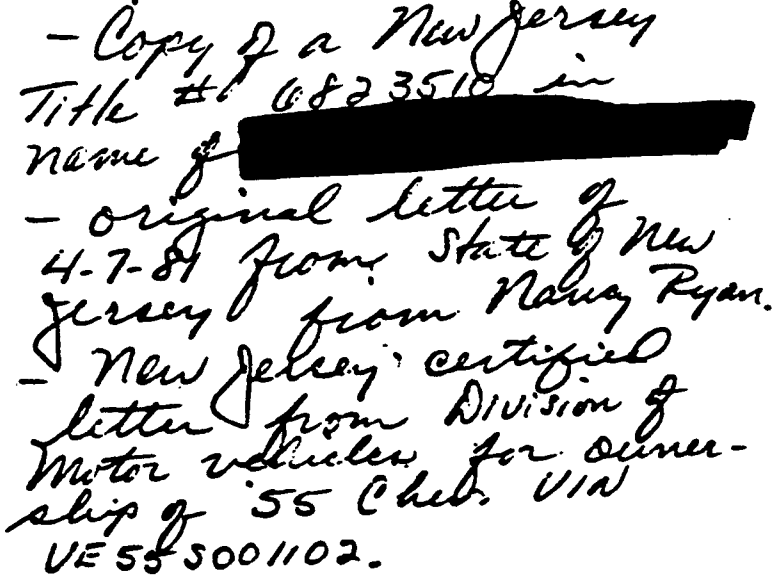 - Copy of a New Jersey
Title # 6823510 in
name of
- original letter of
4-7-81 from State of New
Jersey from Nancy Ryan.
- New Jersey certified
letter from Division of
Motor vehicles for owner-
ship of '55 Chev. VIN
VE55S001102.